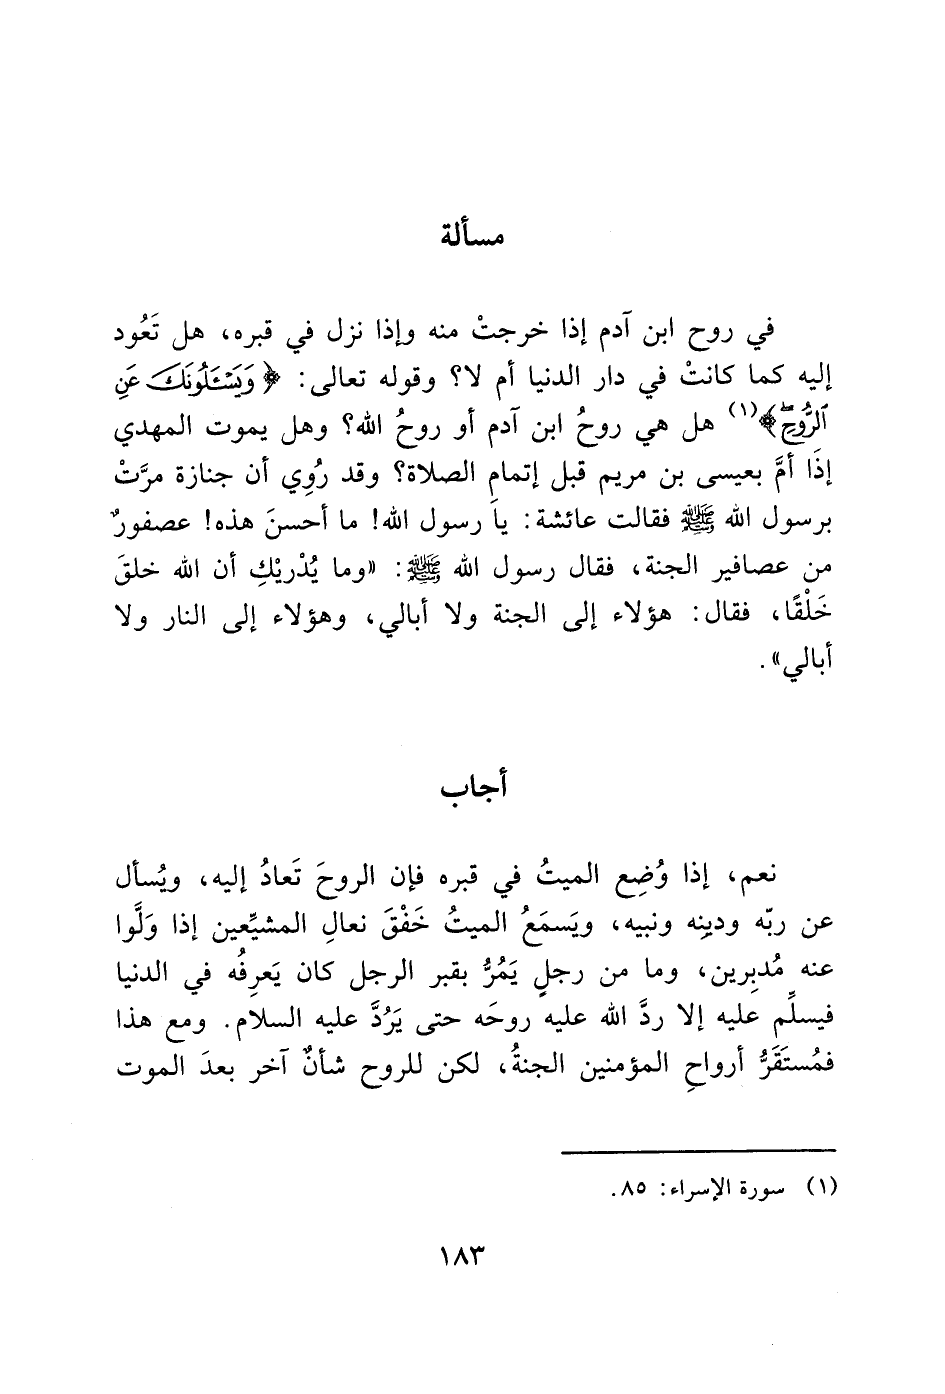 مسألة
في روح ابن آدم إذا خرجتْ منه وإذا نزل في قبره، هل تَعُود
إليه كما كانتْ في دار الدنيا أم لا؟ وقوله تعالى: ﴿وَيَسْـَٔلُونَكَ عَنِ
ٱلرُّوحِۖ﴾(١) هل هي روحُ ابن آدم أو روحُ الله؟ وهل يموت المهدي
إذَا أمَّ بعيسى بن مريم قبل إتمام الصلاة؟ وقد رُوِي أن جنازة مرَّتْ
برسول الله ﷺ فقالت عائشة: يا رسول الله! ما أحسنَ هذه! عصفورٌ
من عصافير الجنة، فقال رسول الله ﷺ: «وما يُدْريْكِ أن الله خلقَ
خَلْقًا، فقال: هؤلاء إلى الجنة ولا أبالي، وهؤلاء إلى النار ولا
أبالي».
أجاب
نعم، إذا وُضِع الميتُ في قبره فإن الروحَ تَعادُ إليه، ويُسأل
عن ربّه ودينِه ونبيه، ويَسمَعُ الميتُ خَفْقَ نعالِ المشيِّعين إذا وَلَّوا
عنه مُدبِرين، وما من رجلٍ يَمُرُّ بقبر الرجل كان يَعرِفُه في الدنيا
فيسلِّم عليه إلا ردَّ الله عليه روحَه حتى يَرُدَّ عليه السلام. ومع هذا
فمُستَقَرُّ أرواحِ المؤمنين الجنةُ، لكن للروح شأنٌ آخر بعدَ الموت
(١) سورة الإسراء: ٨٥.
١٨٣